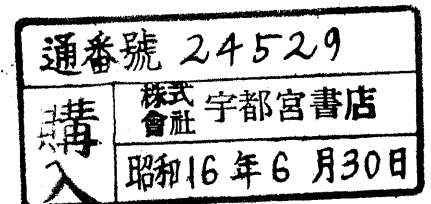 通番號 24529
購入
株式會社 宇都宮書店
昭和16年6月30日